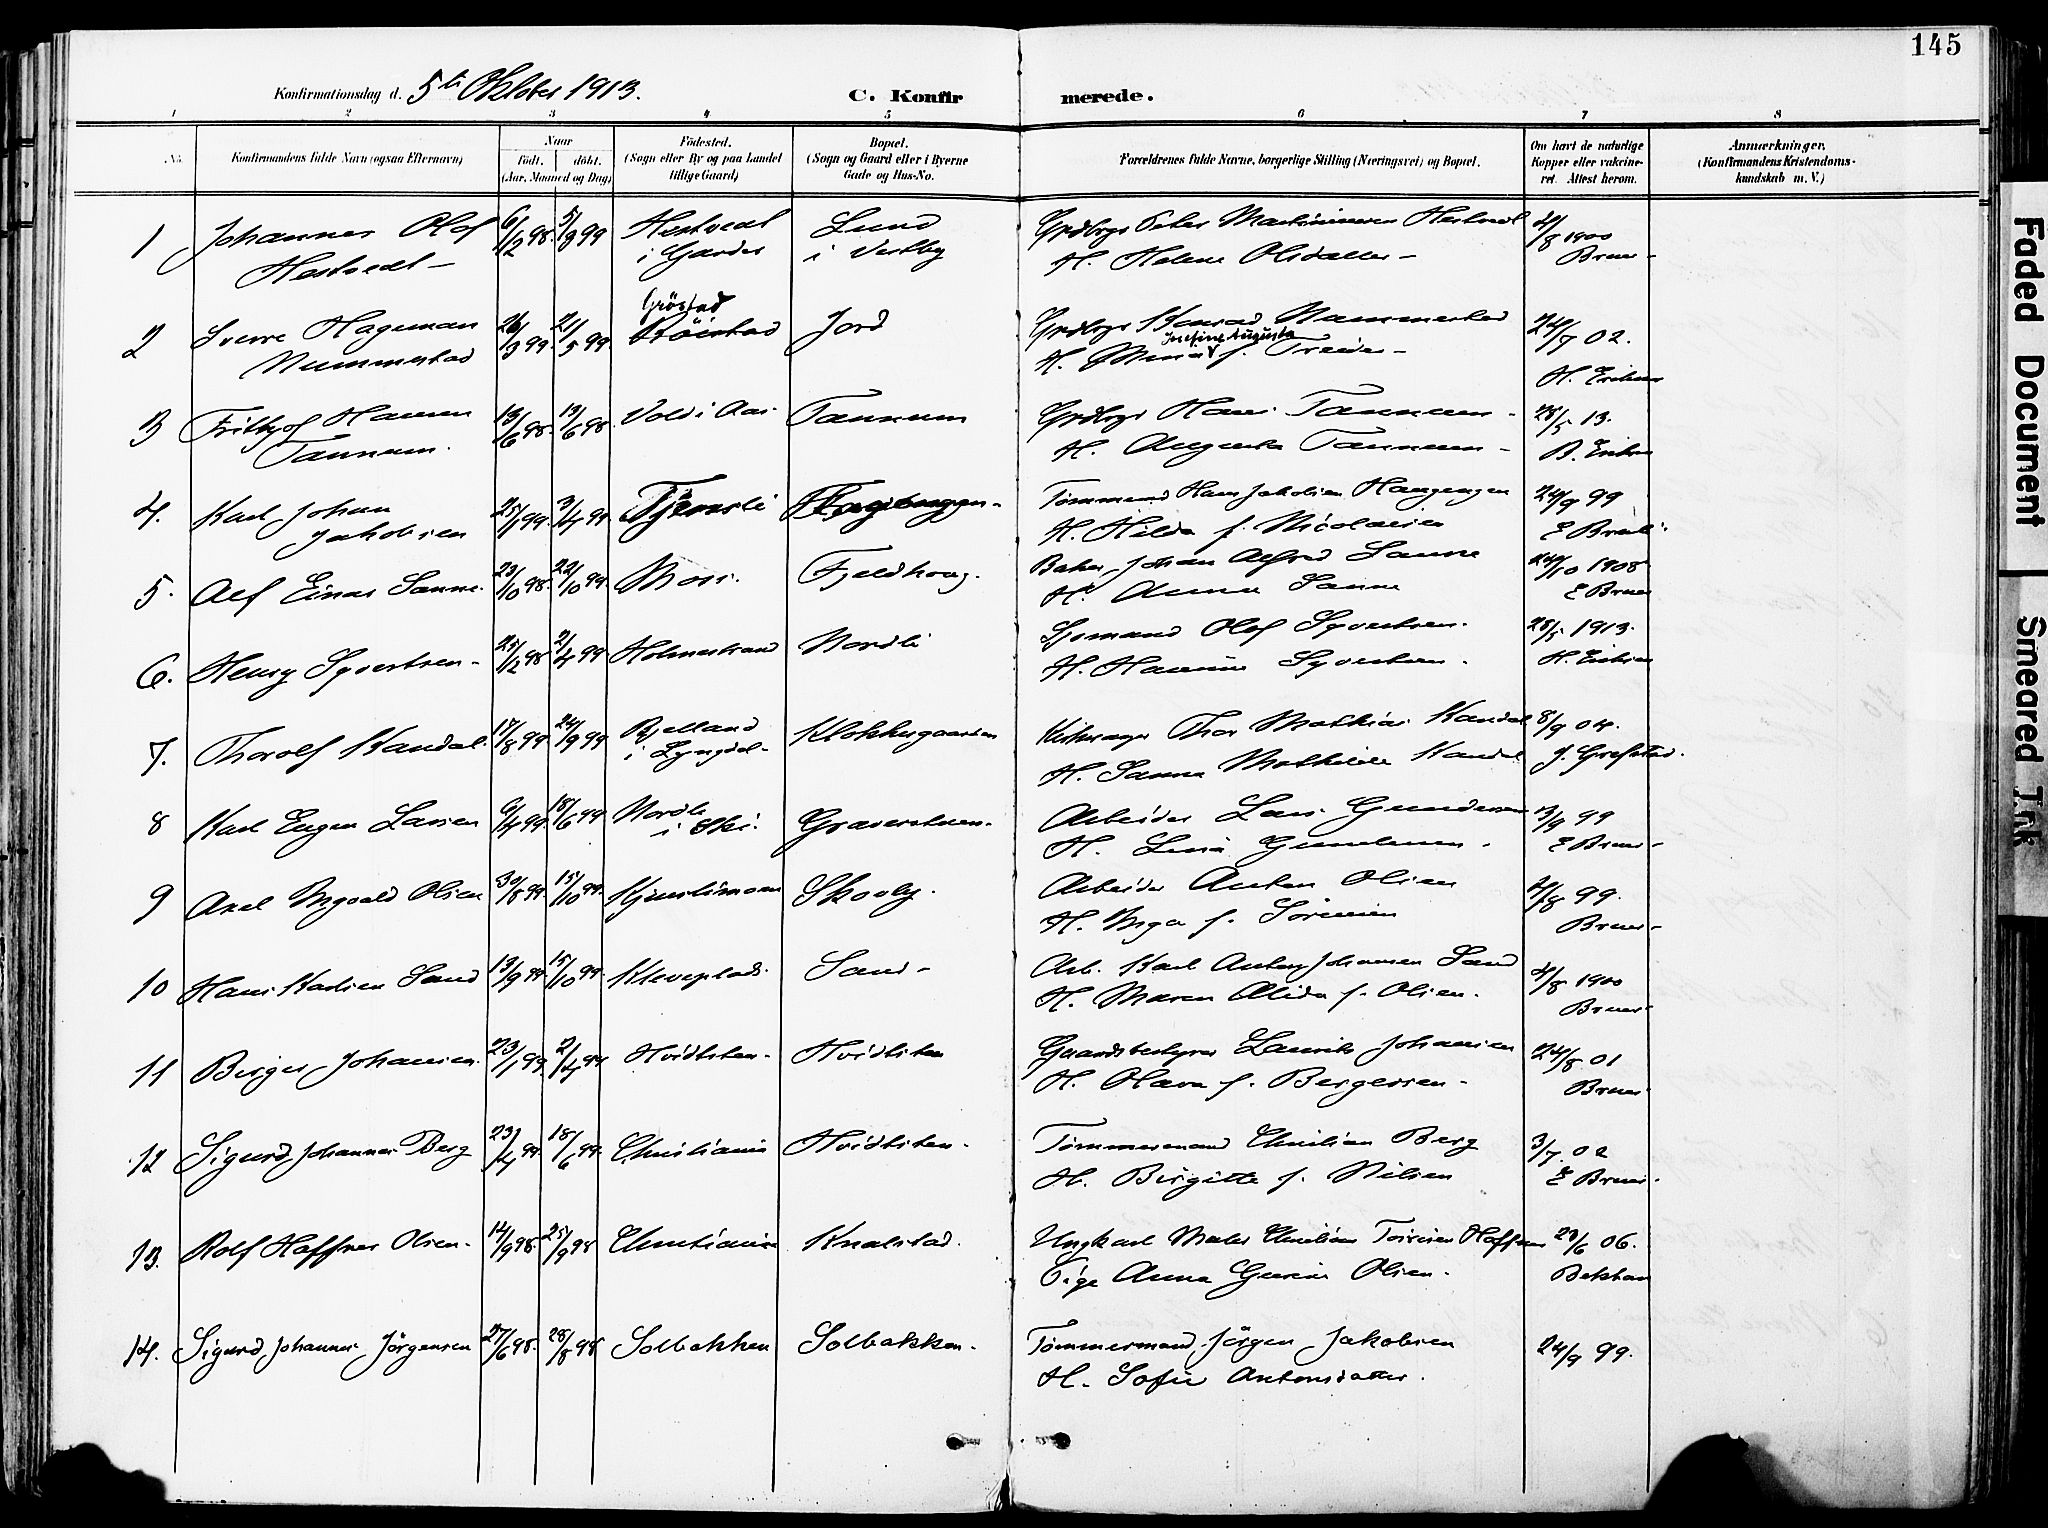 145
Konfirmationsdag d. 5te Oktober 1913. C. Konfirmerede.
1 2 3 4 5 6 7 8
No.
Konfirmandens fulde Navn (ogsaa Efternavn)
Naar
födt. döbt.
(Aar, Maaned og Dag)
Födested.
(Sogn eller By og paa Landet
tillige Gaard)
Bopæl.
(Sogn og Gaard eller i Byerne
Gade og Hus-No.
Forældrenes fulde Navne, borgerlige Stilling (Næringsvei) og Bopæl.
Om havt de naturlige
Kopper eller vaccine-
ret. Attest herom.
Anmærkninger.
(Konfirmandens Kristendoms-
kundskab m. V.)
1 Johannes Olaf 6/12 98. 5/9 99 Hestvedt Lund Grdbrgr Peter Martiniussen Hestvedt 21/8 1900
Hestvedt i Garder i Vestby H. Helene Olsdatter Bruer
Gröstad
2 Sverre Hageman 26/3 99. 21/5 99. Jord Grdbrgr Konrad Nummestad 24/7 02.
Nummestad H. Mina Josefine Augusta f. Treider H. Eriksen
3 Fritjof Hansen 13/6 98. 19/6 98. Vold i Aas. Tannum Grdbrgr Hans Tannum 28/5 13.
Tannum. H. Augusta Tannum
4. Karl Johan 25/1 99. 3/4 99 Tjernsli Tømmermand Hans Jakobsen Haugengen 24/9 99
Jakobsen H. Hilda f. Nicolaisen
5. Alf Einar Sanne. 23/10 98. 22/10 99. Moss. Fjeldhoug. Baker Johan Alfred Sanne 24/10 1908
H. Anna Sanne E Bruer
6. Henry Syvertsen 25/12 98 2/4 99 Holmestrand Nordli Sjømand Olaf Syvertsen. 28/5 1913.
H. Hansine Syvertsen. H. Eriksen
7. Thorolf Kandal. 17/8 99. 24/9 99 Bjelland Klokkergaarden Kirkesanger Thor Mathias Kandal 8/9 04.
i Lyngdal H. Sanna Mathilde Kandal J. Grefstad.
8 Karl Eugen Larsen 9/4 99. 18/6 99 Nordli Graverstuen. Arbeider Lars Gundersen 3/9 99
i Ski. H. Lina Gundersen. E Bruer
9 Axel Ingvald Olsen 30/8 99. 15/10 99. Kjernslimoen Skovly. Arbeider Anton Olsen 21/8 99.
H. Inga f. Sørensen Bruer
10 Hans Karlsen Sand 13/9 99. 15/10 99. Kleveplads. Sand Arb. Karl Anton Johansen Sand 21/8 1900
H. Maren Alida f. Olsen. Bruer
11 Birger Johansen. 23/1 99. 2/4 99 Hvidtsten. Hvidtsten Gaardsbestyrer Laurits Johansen 24/8 01
H. Olava f. Bergersen Bruer
12 Sigurd Johannes Berg 23/4 99. 18/6 99. Christiania Hvidtsten. Tømmermand Christian Berg 3/7. 02
H. Birgitte f. Nilsen E Bruer.
13. Rolf Haffner Olsen. 14/9 98. 25/9 98 Christiania Knalstad. Ungkarl Maler Christian Haffner 23/6 06.
Pige Anna Gurine Olsen.
14. Sigurd Johannes Jörgensen 27/6 98. 28/8 98 Solbakken Solbakken. Tømmermand Jörgen Jakobsen 24/9 99.
H. Sofie Antonsdatter.
Faded Document
Smeared Ink